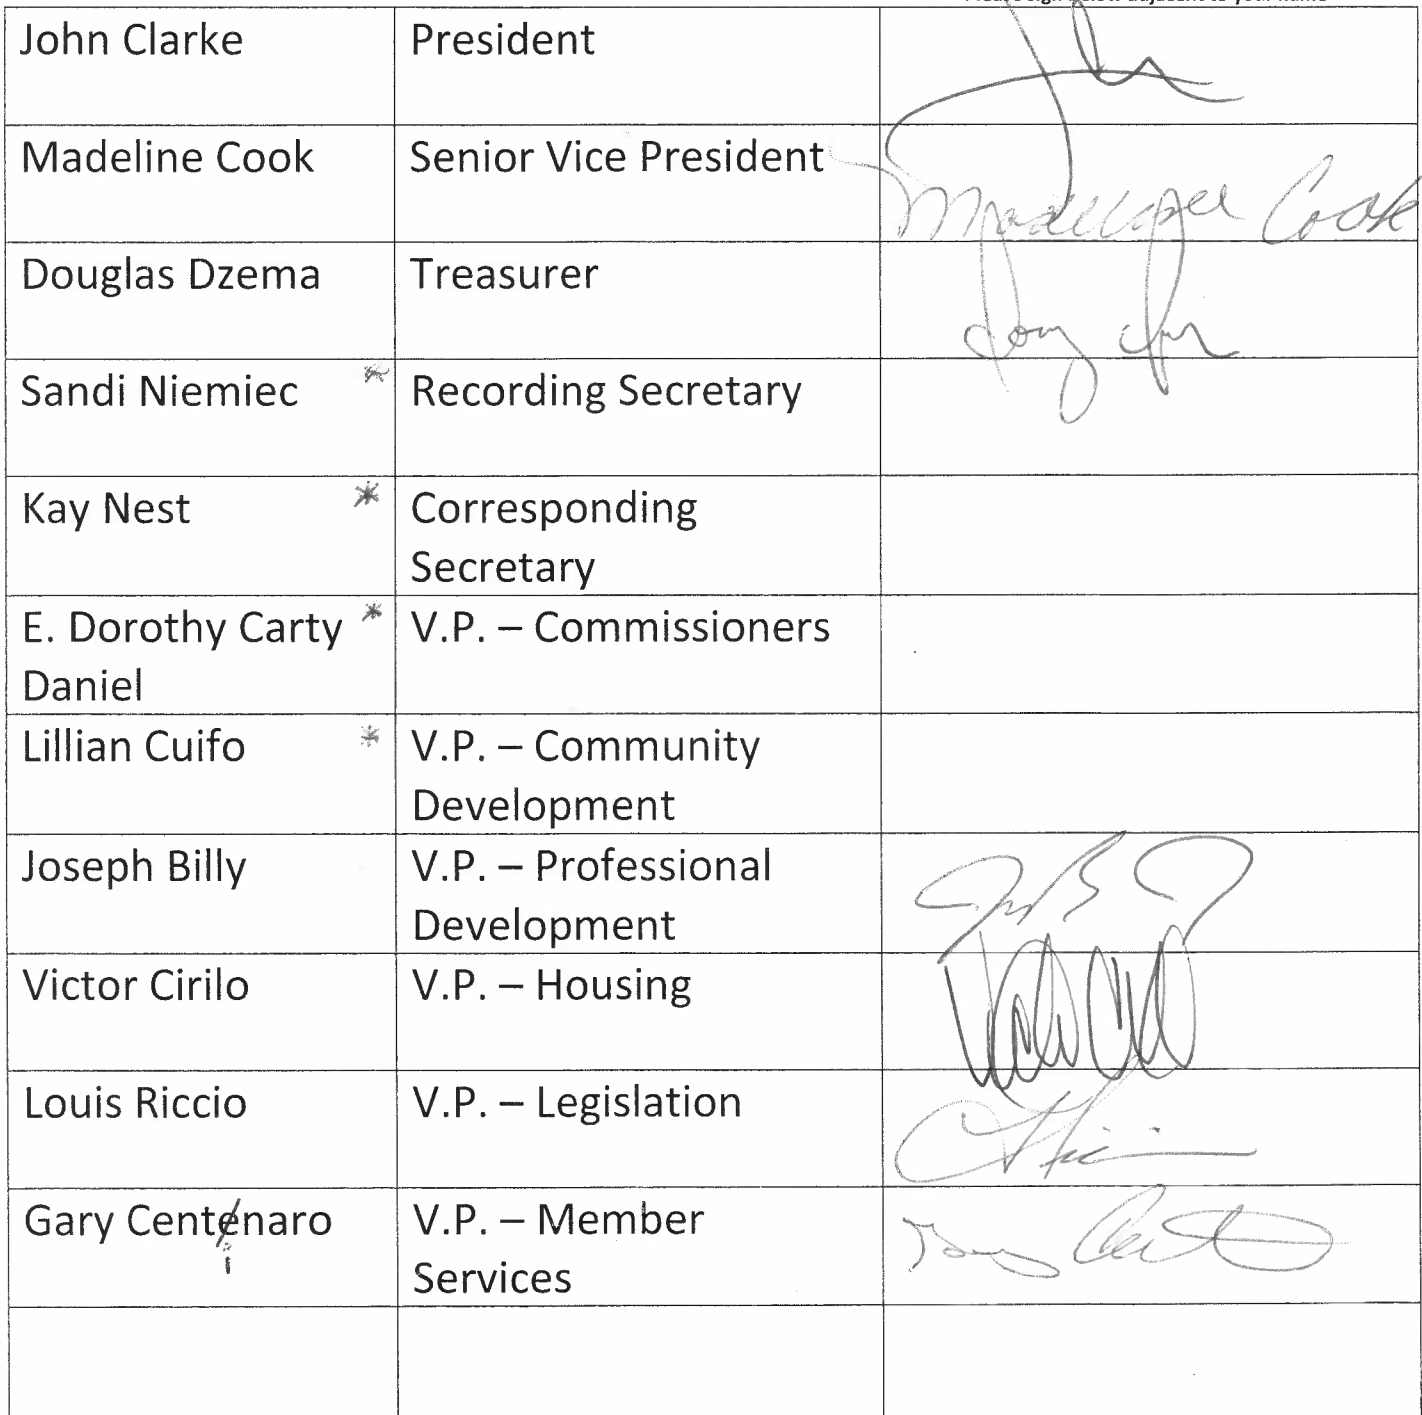 Please sign below adjacent to your name
John Clarke President
Madeline Cook Senior Vice President Madeline Cook
Douglas Dzema Treasurer
Sandi Niemiec * Recording Secretary
Kay Nest * Corresponding
Secretary
E. Dorothy Carty * V.P. – Commissioners
Daniel
Lillian Cuifo * V.P. – Community
Development
Joseph Billy V.P. – Professional
Development
Victor Cirilo V.P. – Housing
Louis Riccio V.P. – Legislation
Gary Centenaro V.P. – Member
i
Services